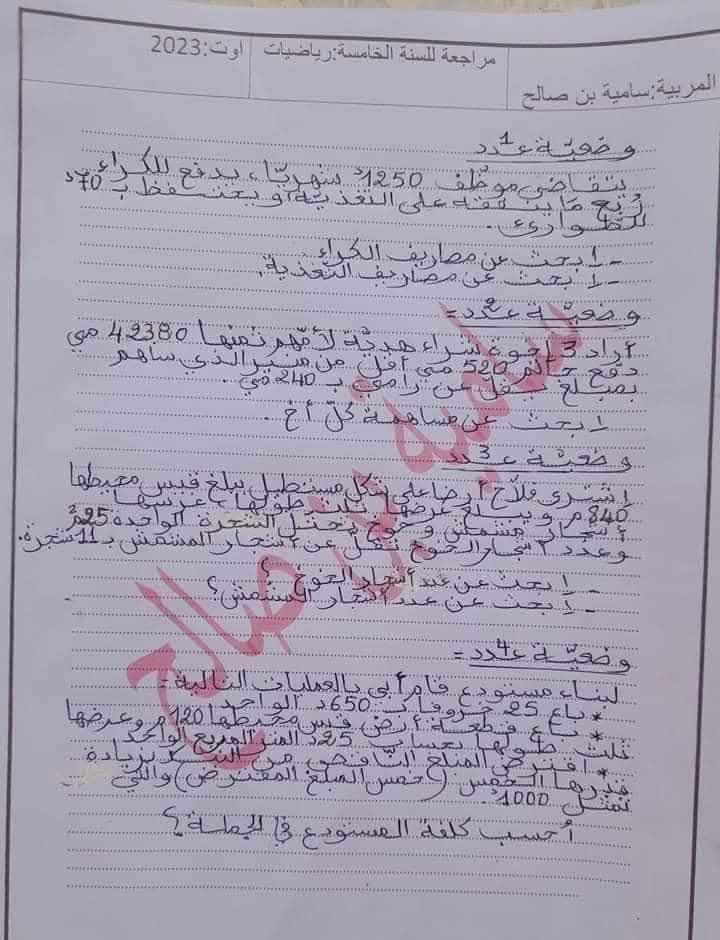 المربية:سامية بن صالح
مراجعة للسنة الخامسة:رياضيات
اوت:2023
وضعيّة عدد 1
يتقاضى موظّف 1250د شهريّا، يدفع للكراء
رُبع ما ينفقه على التغذية و يحتفظ بـ 70د
للطوارئ.
- ابحث عن مصاريف الكراء
- ابحث عن مصاريف التغذية.
وضعيّة عدد 2=
أراد 3 إخوة شراء هديّة لأمّهم ثمنها 42380 مي
دفع حاتم 520 مي أقل من منير الذي ساهم
بمبلغ يقل عن رامي بـ 240مي.
ابحث عن مساهمة كلّ أخ.
وضعيّة عدد 3
اشترى فلاّح أرضا على شكل مستطيل يبلغ قيس محيطها
840م ويبلغ عرضها ثلث طولها، غرسها
أشجار مشمش و خوخ تحتل الشجرة الواحدة 25م²
وعدد أشجار الخوخ تقل عن أشجار المشمش بـ 11 شجرة.
- ابحث عن عدد أشجار الخوخ ؟
- ابحث عن عدد أشجار المشمش؟
وضعيّة عدد 4=
لبناء مستودع قام أبي بالعمليات التالية=
* باع 25 خروفا بـ 650د الواحد
* باع قطعة أرض قيس محيطها 120م وعرضها
ثلث طولها بحساب 25د المتر المربع الواحد
* اقترض المبلغ الناقص من البنك بزيادة
قدرها الخمس (خمس المبلغ المقترض) والتي
تمثل 1000د.
أحسب كلفة المستودع في الجملة؟
سامية بن صالح